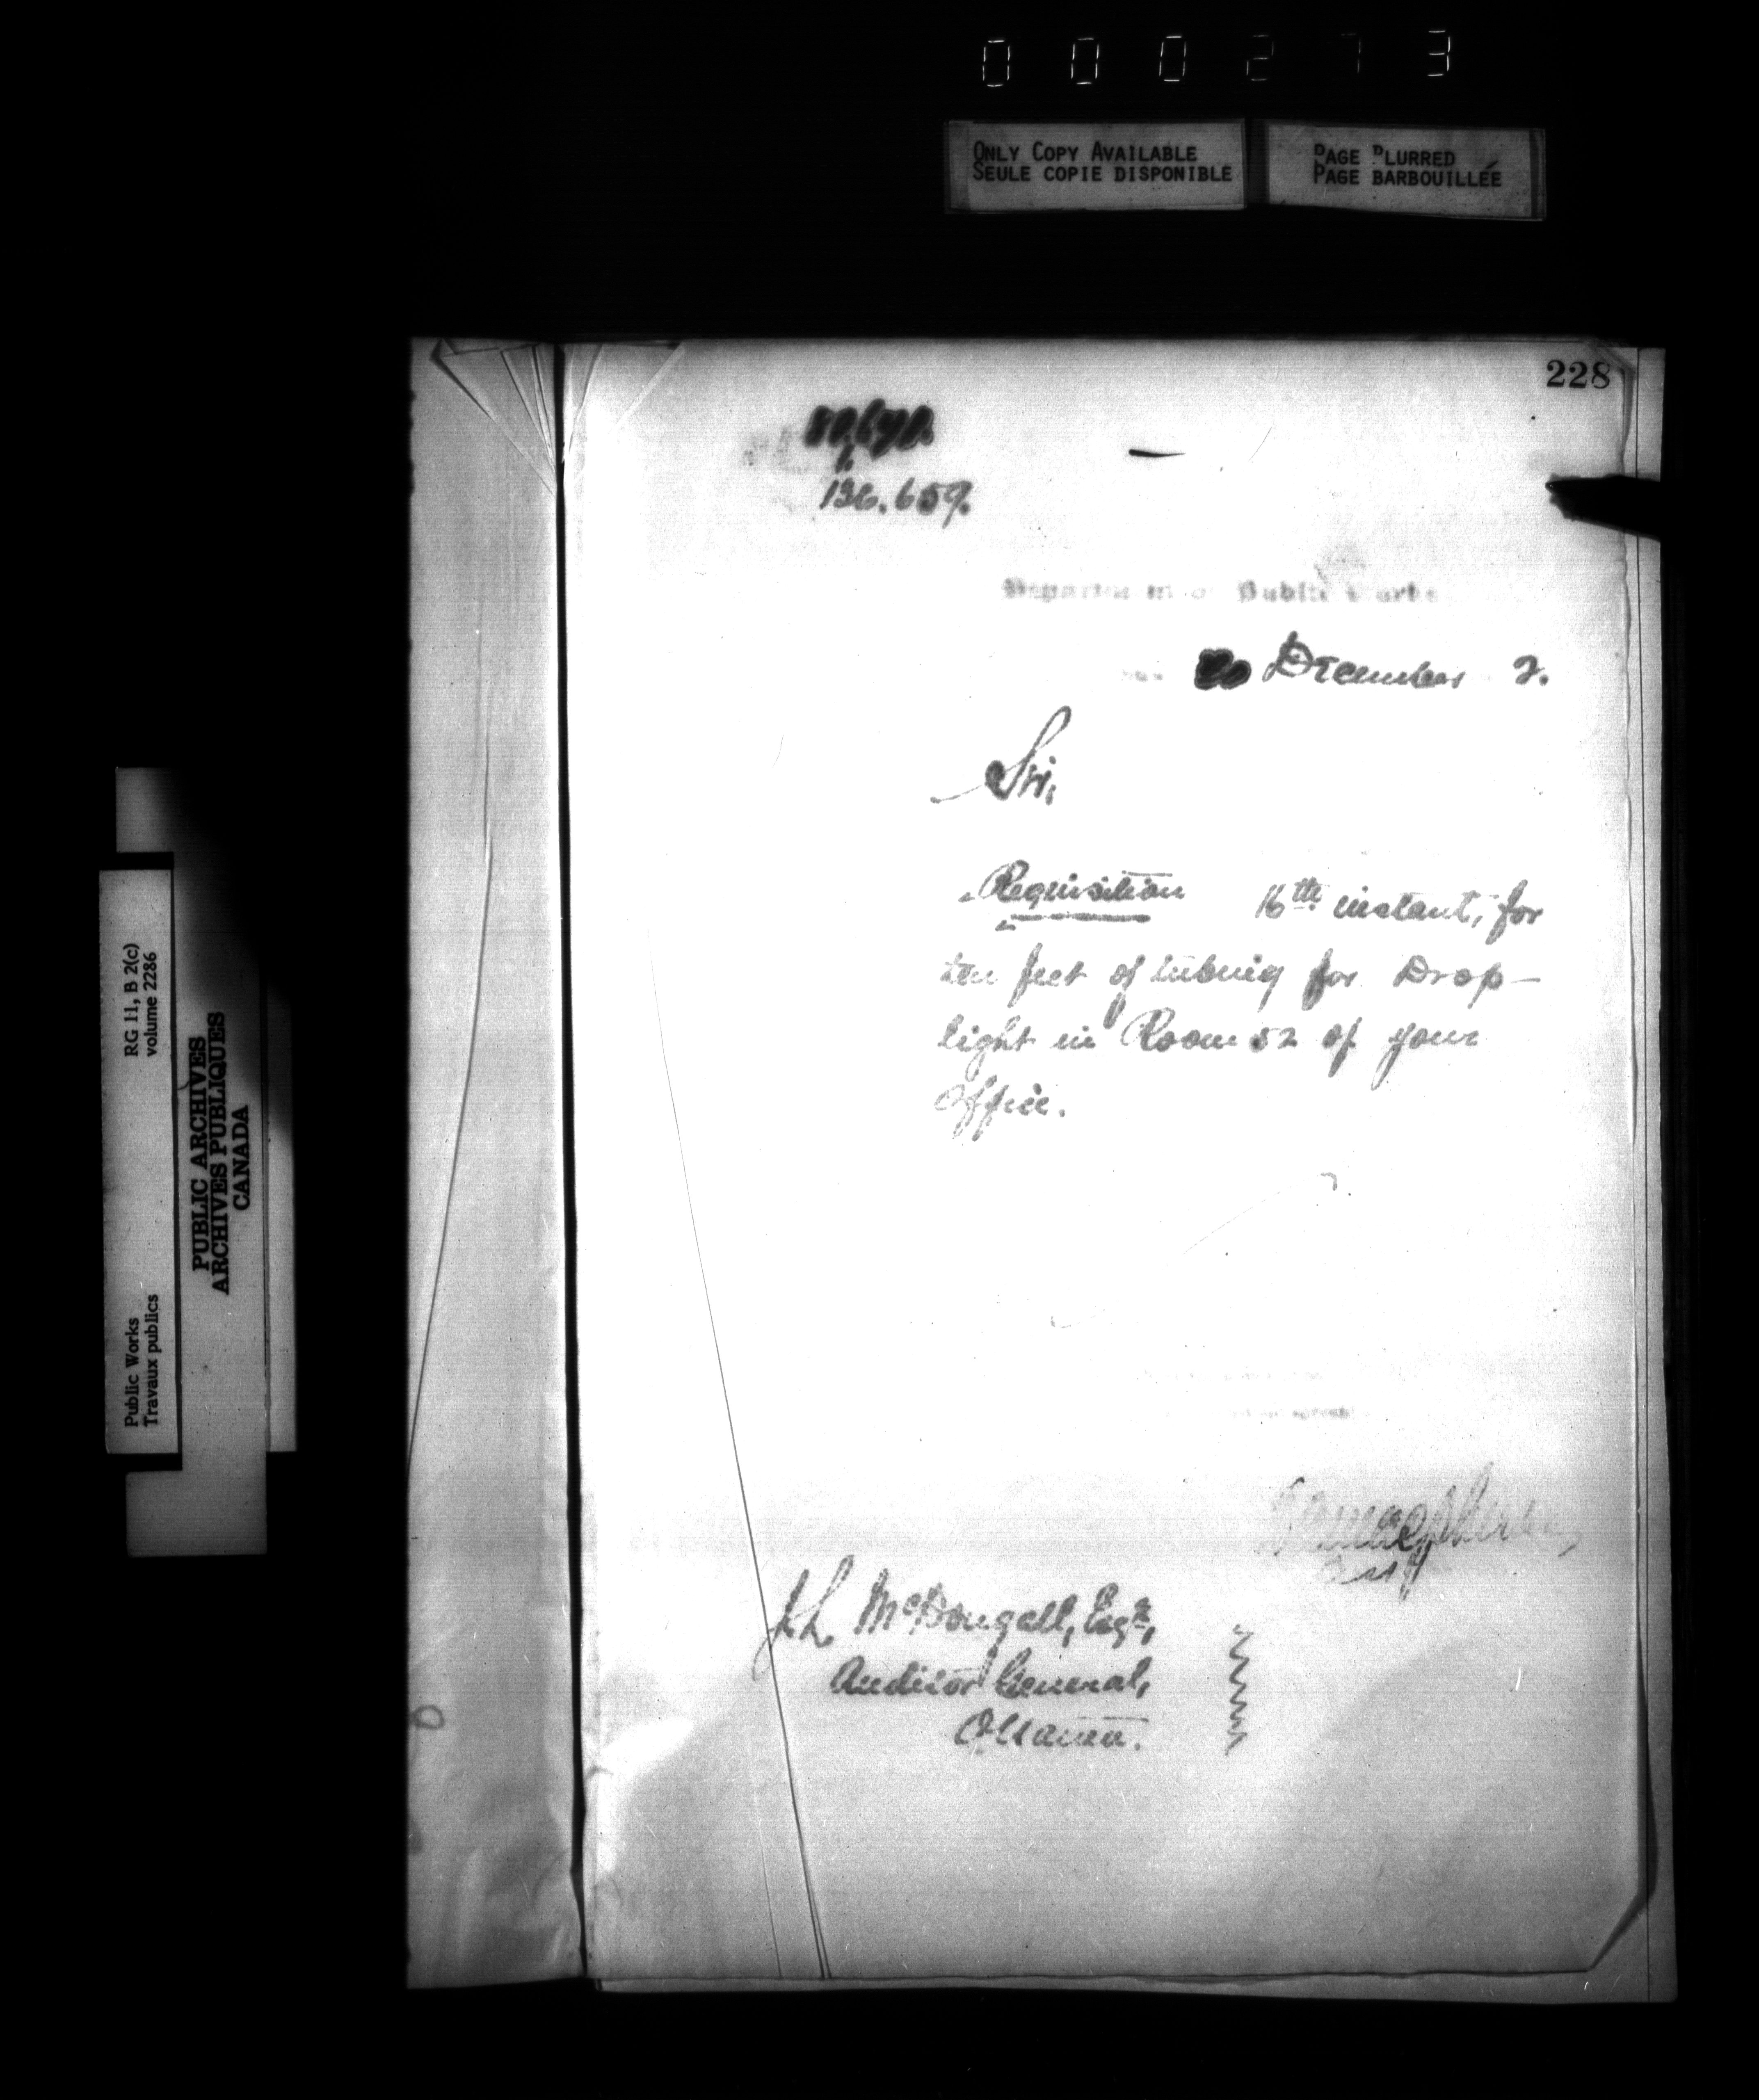 000273
ONLY COPY AVAILABLE
SEULE COPIE DISPONIBLE
PAGE BLURRED
PAGE BARBOUILLÉE
228
136.659.
Department of Public Works
20 December 2.
Sir,
Requisition 16th instant, for
ten feet of tubing for Drop-
light in Room 52 of your
office.
J.L. McDougall, Esqre,
Auditor General,
Ottawa.
RG 11, B 2(c)
volume 2286
Public Works
Travaux publics
PUBLIC ARCHIVES
ARCHIVES PUBLIQUES
CANADA